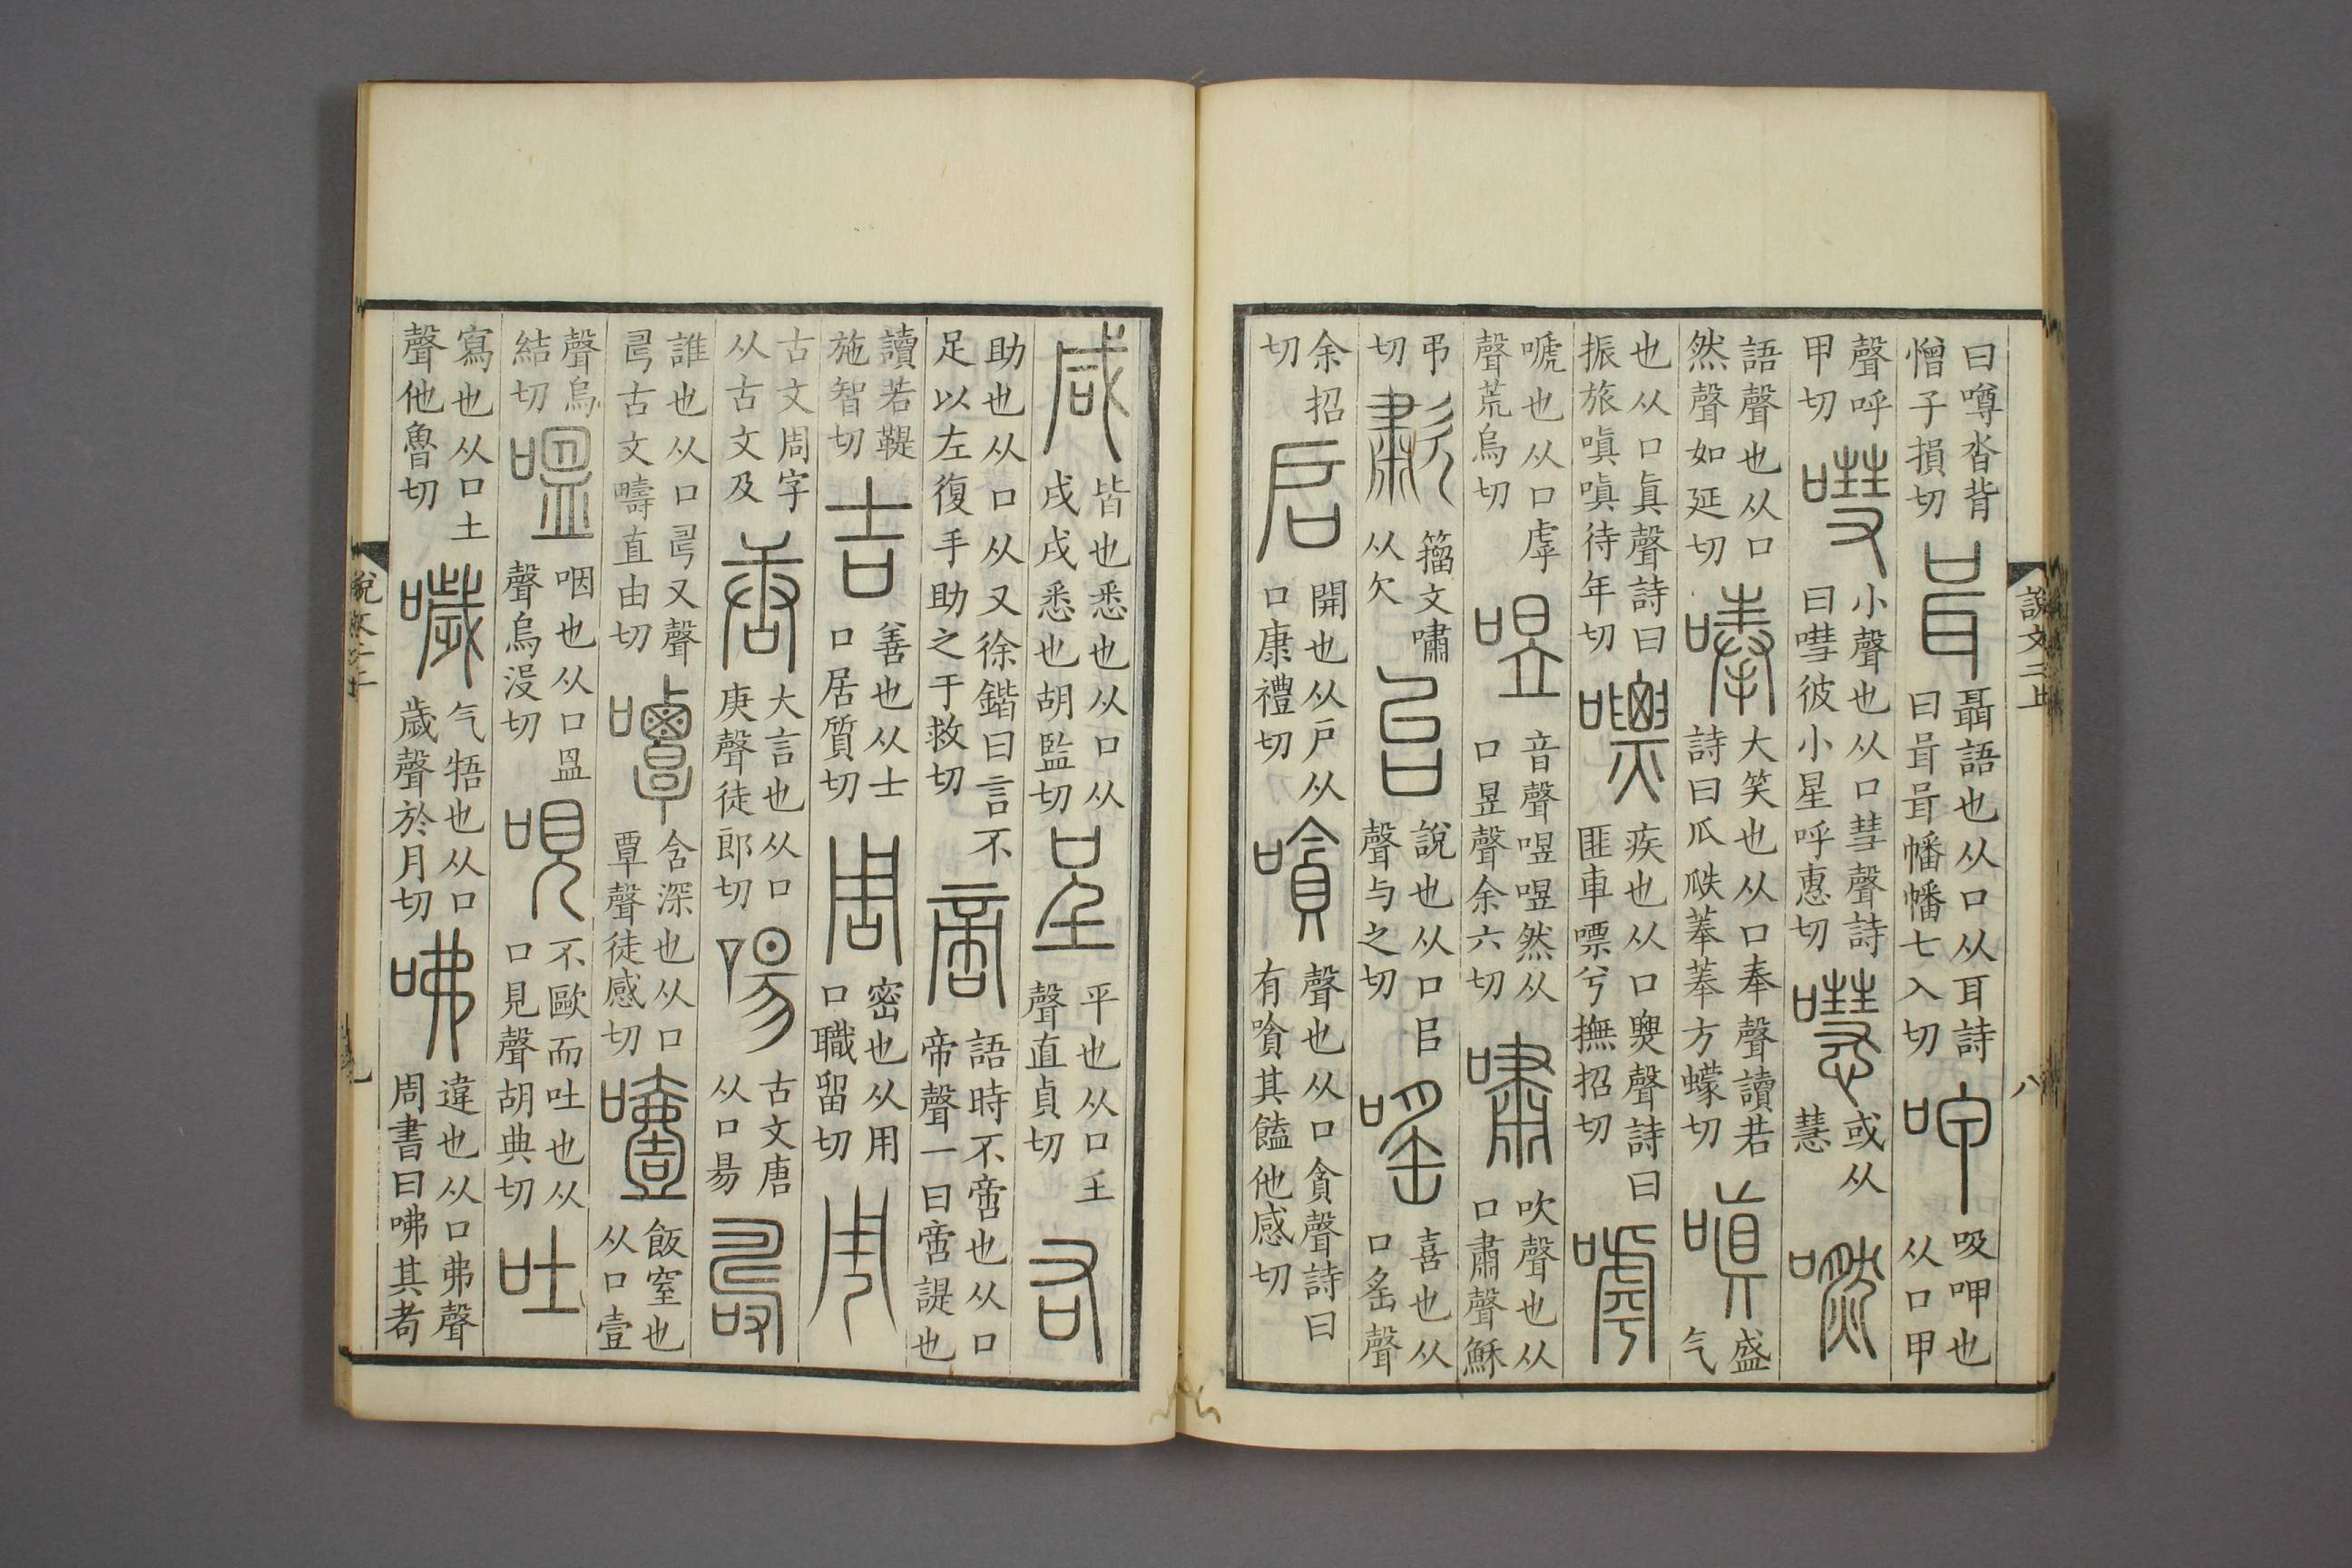 說文二上
八
曰噂沓背憎子損切咠聶語也从口从耳詩曰咠咠幡幡七入切呷吸呷也从口甲
聲呼甲切嘒小聲也从口彗聲詩曰嘒彼小星呼惠切嚖或从慧嘫
語聲也从口然聲如延切唪大笑也从口奉聲讀若詩曰瓜瓞菶菶方蠓切嗔盛气
也从口眞聲詩曰振旅嗔嗔待年切嘌疾也从口㷠聲詩曰匪車嘌兮撫招切嘑
嗁也从口虖聲荒烏切喅音聲喅喅然从口昱聲余六切嘯吹聲也从口肅聲穌
弔切歗籒文嘯从欠台說也从口㠯聲与之切嗂喜也从口䍃聲
余招切启開也从戶从口康禮切嗿聲也从口貪聲詩曰有嗿其饁他感切
咸皆也悉也从口从戌戌悉也胡監切呈平也从口𡈼聲直貞切右
助也从口从又徐鍇曰言不足以左復手助之于救切啻語時不啻也从口帝聲一曰啻諟也
讀若鞮施智切吉善也从士口居質切周密也从用口職留切𠱬
古文周字从古文及唐大言也从口庚聲徒郎切啺古文唐从口昜𠷎
誰也从口𢏚又聲𢏚古文疇直由切嘾含深也从口覃聲徒感切噎飯窒也从口壹
聲烏結切嗢咽也从口𥁕聲烏沒切哯不歐而吐也从口見聲胡典切吐
寫也从口土聲他魯切噦气啎也从口歲聲於月切咈違也从口弗聲周書曰咈其耇
說文二上
九